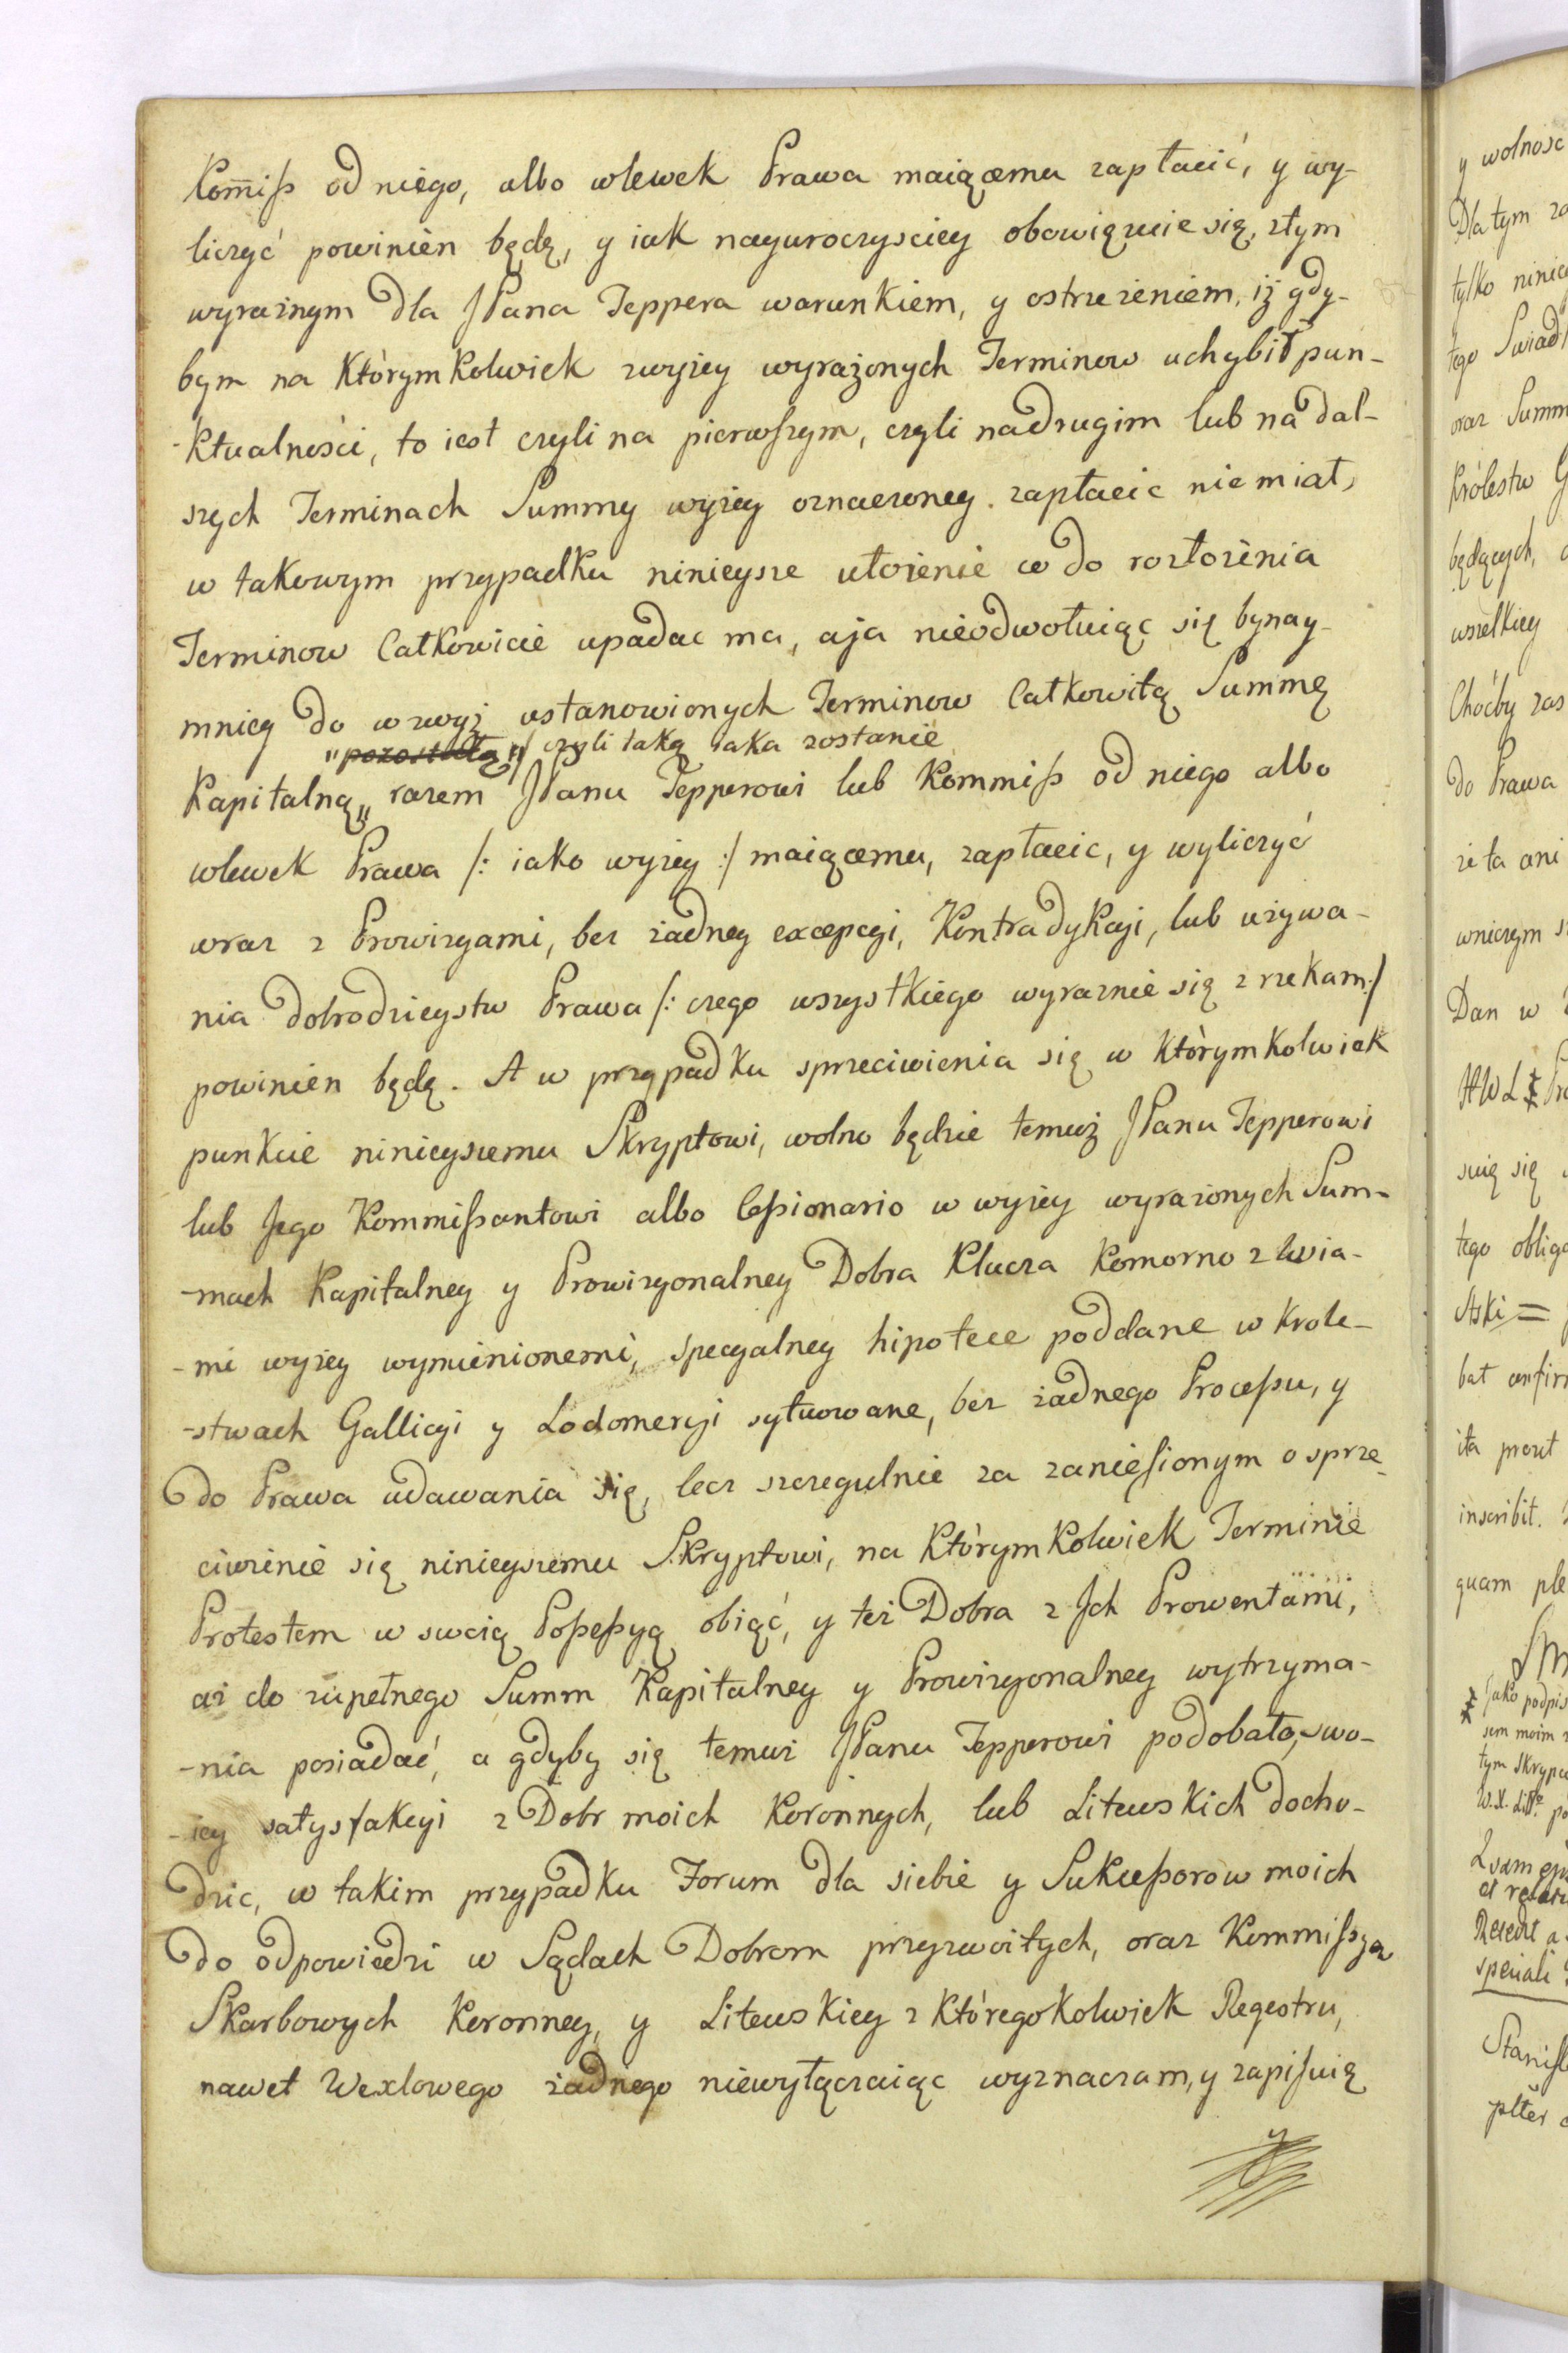 Kom̅iß od niego, albo wlewek Prawa maiącemu zapłacić, y wy-
liczyć powinien będę, y iak nayuroczysciey obowięzuie się, ztym
wyraznym dla JPana Teppera warunkiem, y ostrzezeniem, iż gdy-
bym na Którymkolwiek zwyzey wyrażonych Terminow uchybił pun-
-ktualnosci, to iest czyli na pierwszym, czyli nadrugim lub na dal-
szych Terminach Summy wyzey oznaczoney. zapłacic nie miał,
w takowym przypadku ninieysze ułozenie co do rozłozenia
Terminow Całkowicie upadac ma, aja nieodwołuiąc się bynay-
mniey do wzwyż ustanowionych Terminow Całkowitą Summę
"pozostałą"/ czyli taką iaka zostanie
Kapitalną„ razem JPanu Tepperowi lub Kommiß od niego albo
wlewek Prawa /: iako wyzey :/ maiącemu, zapłacic, y wyliczyć
wraz z Prowizyami, bez zadney excepcyi, Kontradykcyi, lub uzywa-
nia dobrodzieystw Prawa /: czego wszystkiego wyraznie się zrzekam :/
powinien będę. A w przypadku sprzeciwienia się w Którymkolwiek
punkcie ninieyszemu Skryptowi, wolno będzie temuż JPanu Tepperowi
lub Jego Kommißantowi albo Ceßionario w wyzey wyrazonych Sum-
-mach Kapitalney y Prowizyonalney Dobra Klucza Komorno z wsia-
-mi wyzey wymienionemi, specyalney hipotece poddane w Krole-
-stwach Gallicyi y Lodomeryi sytuowane, bez zadnego Proceßu, y
do Prawa udawania się, lecz szczegulnie za zanießionym o sprze-
ciwienie się ninieyszemu Skryptowi, na Którymkolwiek Terminie
Protestem w swoią Poßeßyą obiąć, y tez Dobra z Jch Prowentami,
az do zupełnego Summ Kapitalney y Prowizyonalney wytrzyma-
-nia posiadać, a gdyby się temuz JPanu Tepperowi podobało, swo-
-iey satysfakcyi z Dobr moich Koronnych, lub Litewskich docho-
dzic, w takim przypadku Forum dla siebie y Sukceßorow moich
do odpowiedzi w Sądach Dobrom przyzwoitych, oraz Kommißyą
Skarbowych Koronney, y Litewskiey z Któregokolwiek Regestru,
nawet Wexlowego zadnego niewyłączaiąc wyznaczam, y zapisuię
y
y wolnosc
Dla tym
tylko niniey
tego Swiad
oraz Summ
Królestw G
będących,
wszelkiey
Choćby zas
do Prawa
ze ta ani
wniczym
Dan w
tego oblig
ita prout
inscribit.
quam ple
Jako podpis
sem moim
tym skrypcie
speciali
Stanisl